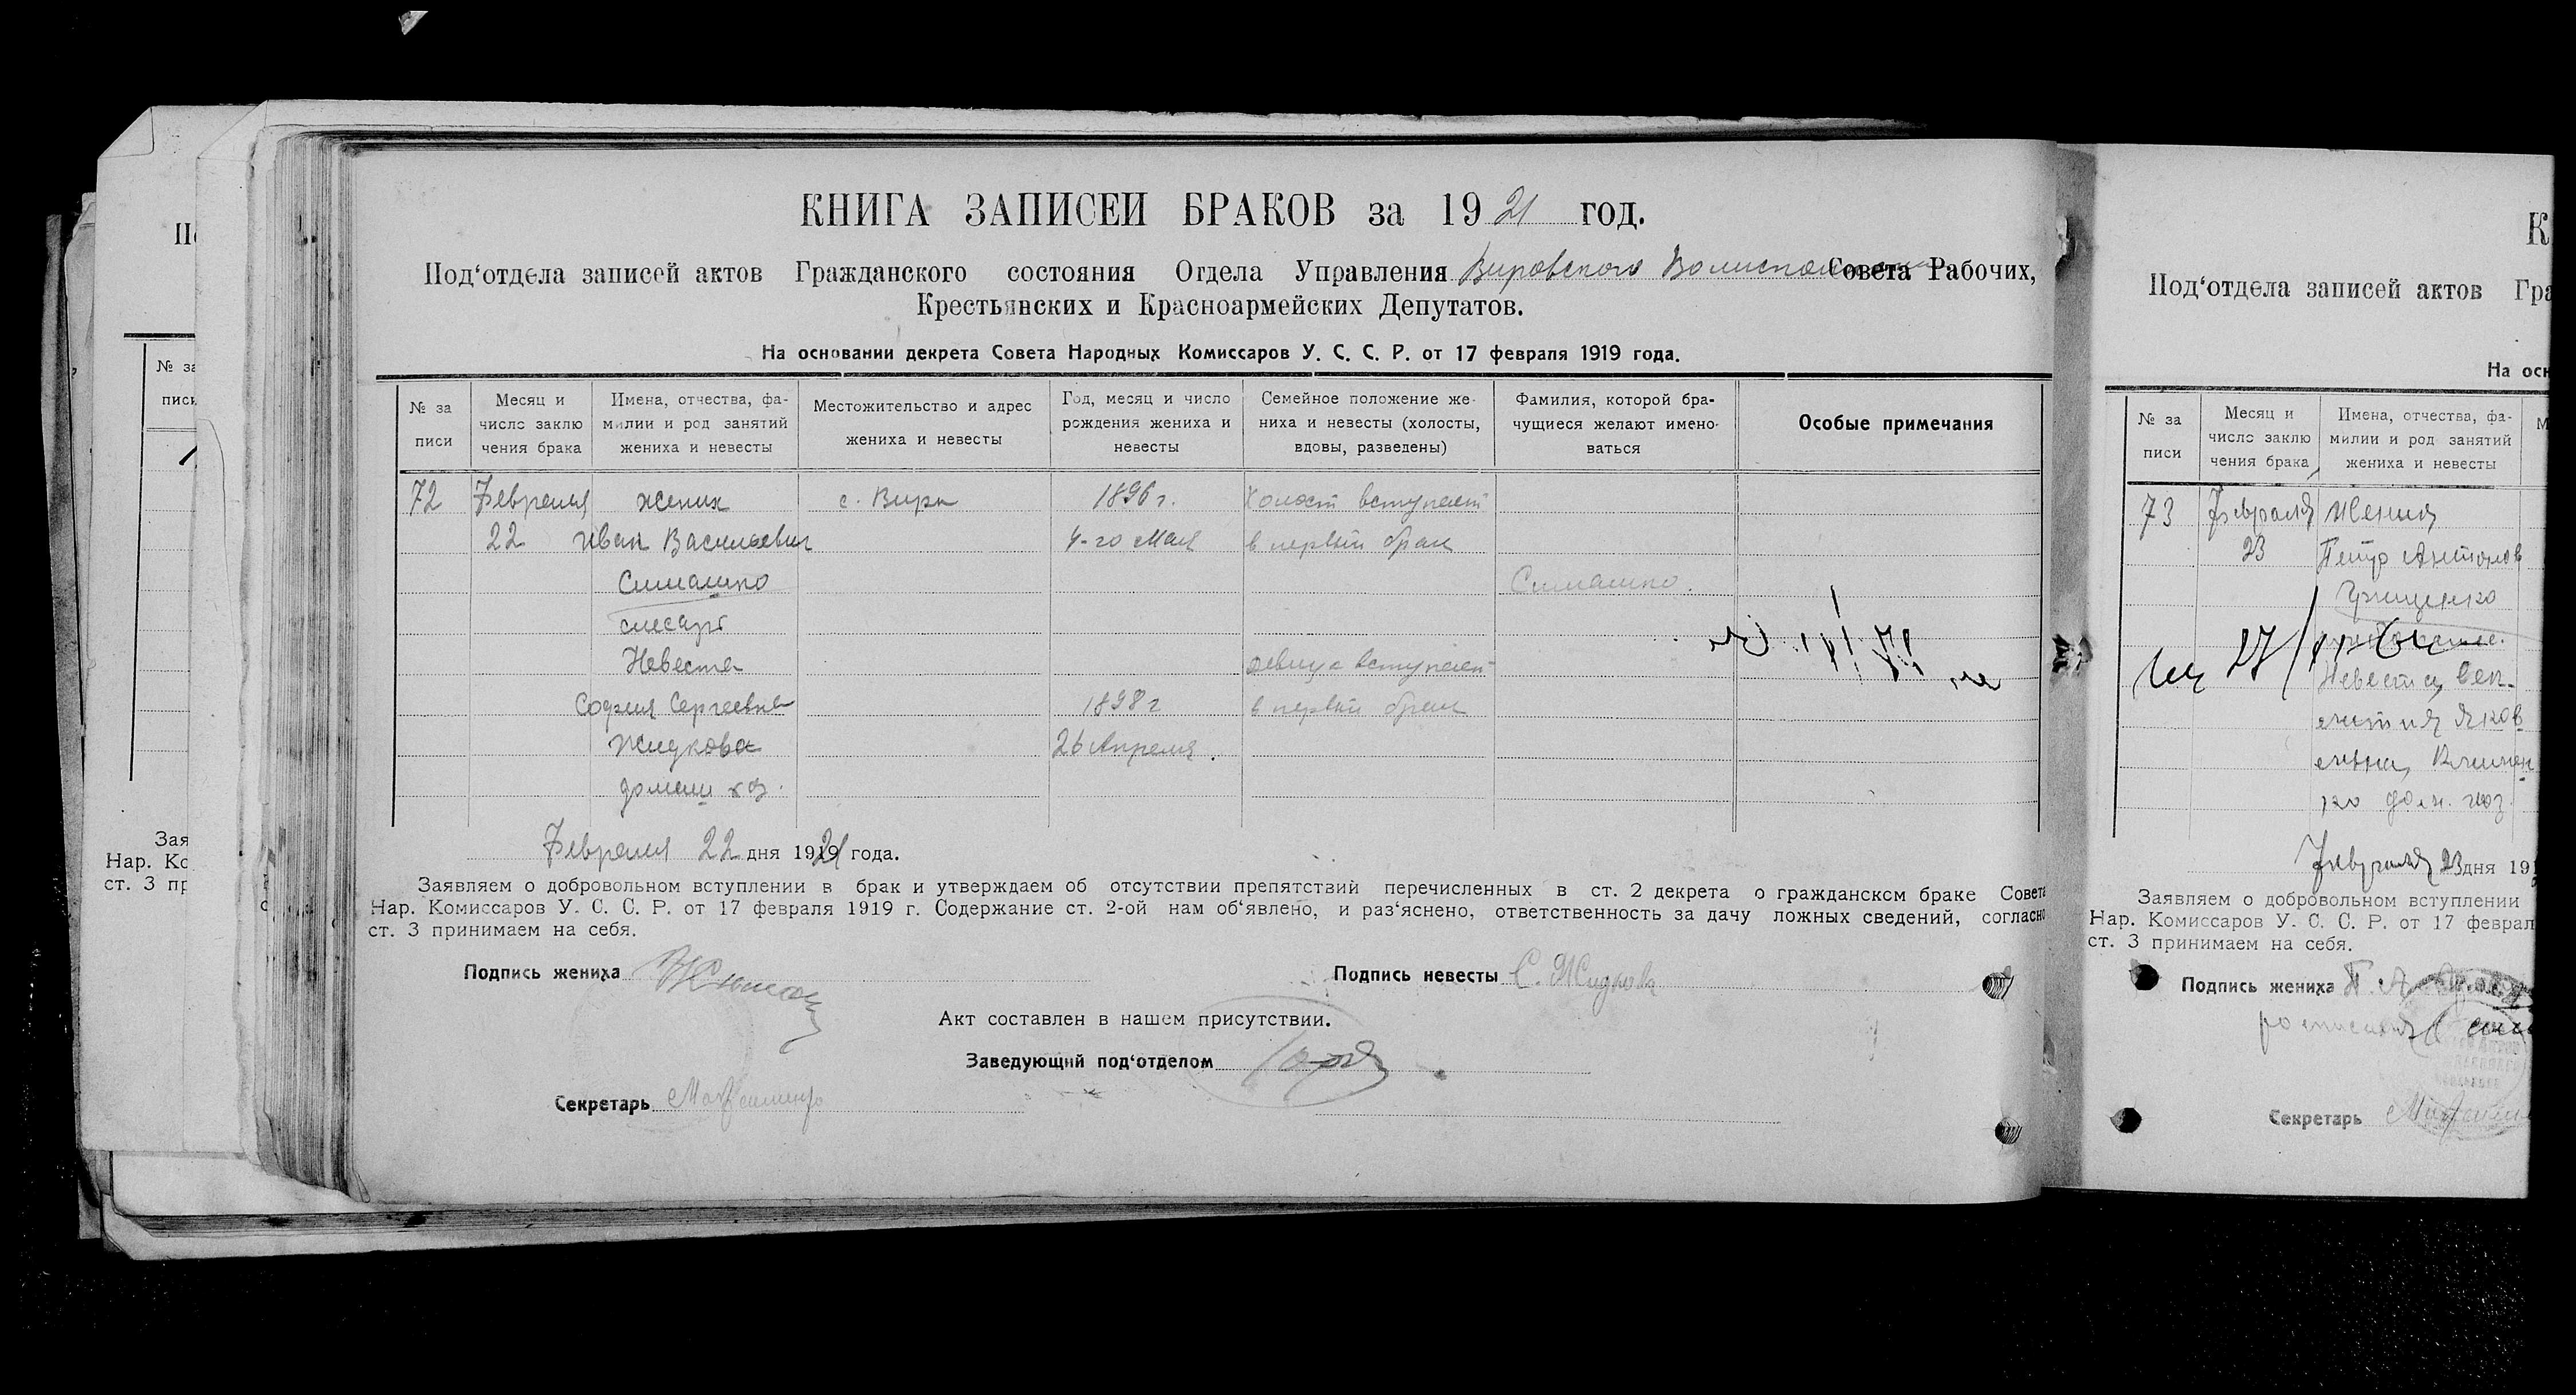 КНИГА ЗАПИСЕЙ БРАКОВ за 1921 год.
Под‘отдела записей актов Гражданского состояния Отдела Управления Вировского Совета Рабочих,
Крестьянских и Красноармейских Депутатов.
На основании декрета Совета Народных Комиссаров У. С. С. Р. от 17 февраля 1919 года.
№ за
писи
Месяц и
число заклю
чения брака
Имена, отчества, фа-
милии и род занятий
жениха и невесты
Местожительство и адрес
жениха и невесты
Год, месяц и число
рождения жениха и
невесты
Семейное положение же-
ниха и невесты (холосты,
вдовы, разведены)
Фамилия, которой бра-
чущиеся желают имено-
ваться
Особые примечания
72 Февраля жених с. Виры 1896 г. холост вступает
22 Иван Васильевич 4-го Мая в первый брак
Симашко Симашко.
слесарь
Невеста девица вступает
София Сергеевна 1898 г в первый брак
Жидкова 26 Апреля.
домаш хоз.
Февраля 22 дня 1921 года.
Заявляем о добровольном вступлении в брак и утверждаем об отсутствии препятствий перечисленных в ст. 2 декрета о гражданском браке Совета
Нар. Комиссаров У. С. С. Р. от 17 февраля 1919 г. Содержание ст. 2-ой нам об‘явлено, и раз‘яснено, ответственность за дачу ложных сведений, согласно
ст. 3 принимаем на себя.
Подпись жениха
Подпись невесты С. Жидкова
Акт составлен в нашем присутствии.
Заведующий под‘отделом
Секретарь
К
Под‘отдела записей актов Гра
На осн
№ за
писи
Месяц и
число заклю
чения брака
Имена, отчества, фа-
милии и род занятий
жениха и невесты
73 Февраля Жених
23 Петр Антонов
Грищенко
Невеста
Яков
дом. хоз.
Февраля 23 дня 19
Заявляем о добровольном вступлении
Нар. Комиссаров У. С. С. Р. от 17 феврал
ст. 3 принимаем на себя.
Подпись жениха
Секретарь
№ за
писи
Зая
Нар. Ко
ст. 3 пр